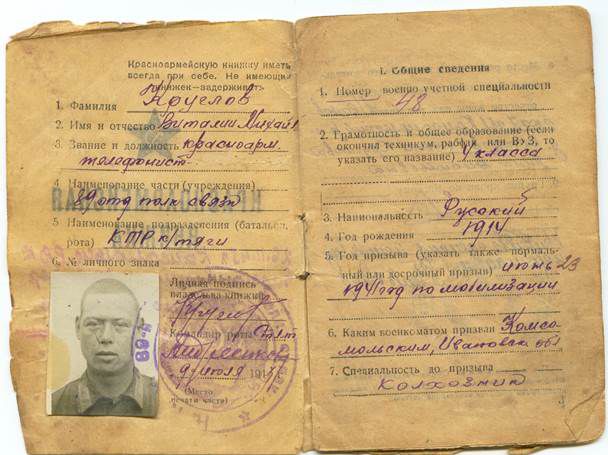 Красноармейскую книжку иметь
всегда при себе. Не имеющих
книжек—задерживать.
1. Фамилия Круглов
2. Имя и отчество Виталий Михайл
3. Звание и должность красноарм.
телефонист
4. Наименование части (учреждения)
89 отд полк связи
5. Наименование подразделения (батальон,
рота)
6. № личного знака
Личная подпись
владельца книжки
Командир роты
1941
(Место
печати части)
89
I. Общие сведения
1. Номер военно-учетной специальности
48
2. Грамотность и общее образование (если
окончил техникум, рабфак или ВУЗ, то
указать его название) 4 класса
3. Национальность Русский
4. Год рождения 1914
5. Год призыва (указать также нормаль-
ный или досрочный призыв) июнь 23
1941 год по мобилизации
6. Каким военкоматом призван Комсо
мольским, Ивановск обл
7. Специальность до призыва
колхозник